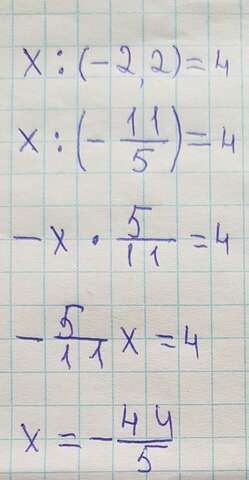 x : (-2,2) = 4
x : (-11/5) = 4
-x · 5/11 = 4
-5/11 x = 4
x = -44/5